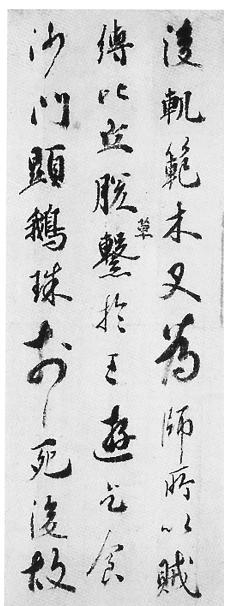 後軌範木叉為師所以賊
縛比丘脫繫於王遊乞食
草
沙門顯鵝珠於死後故